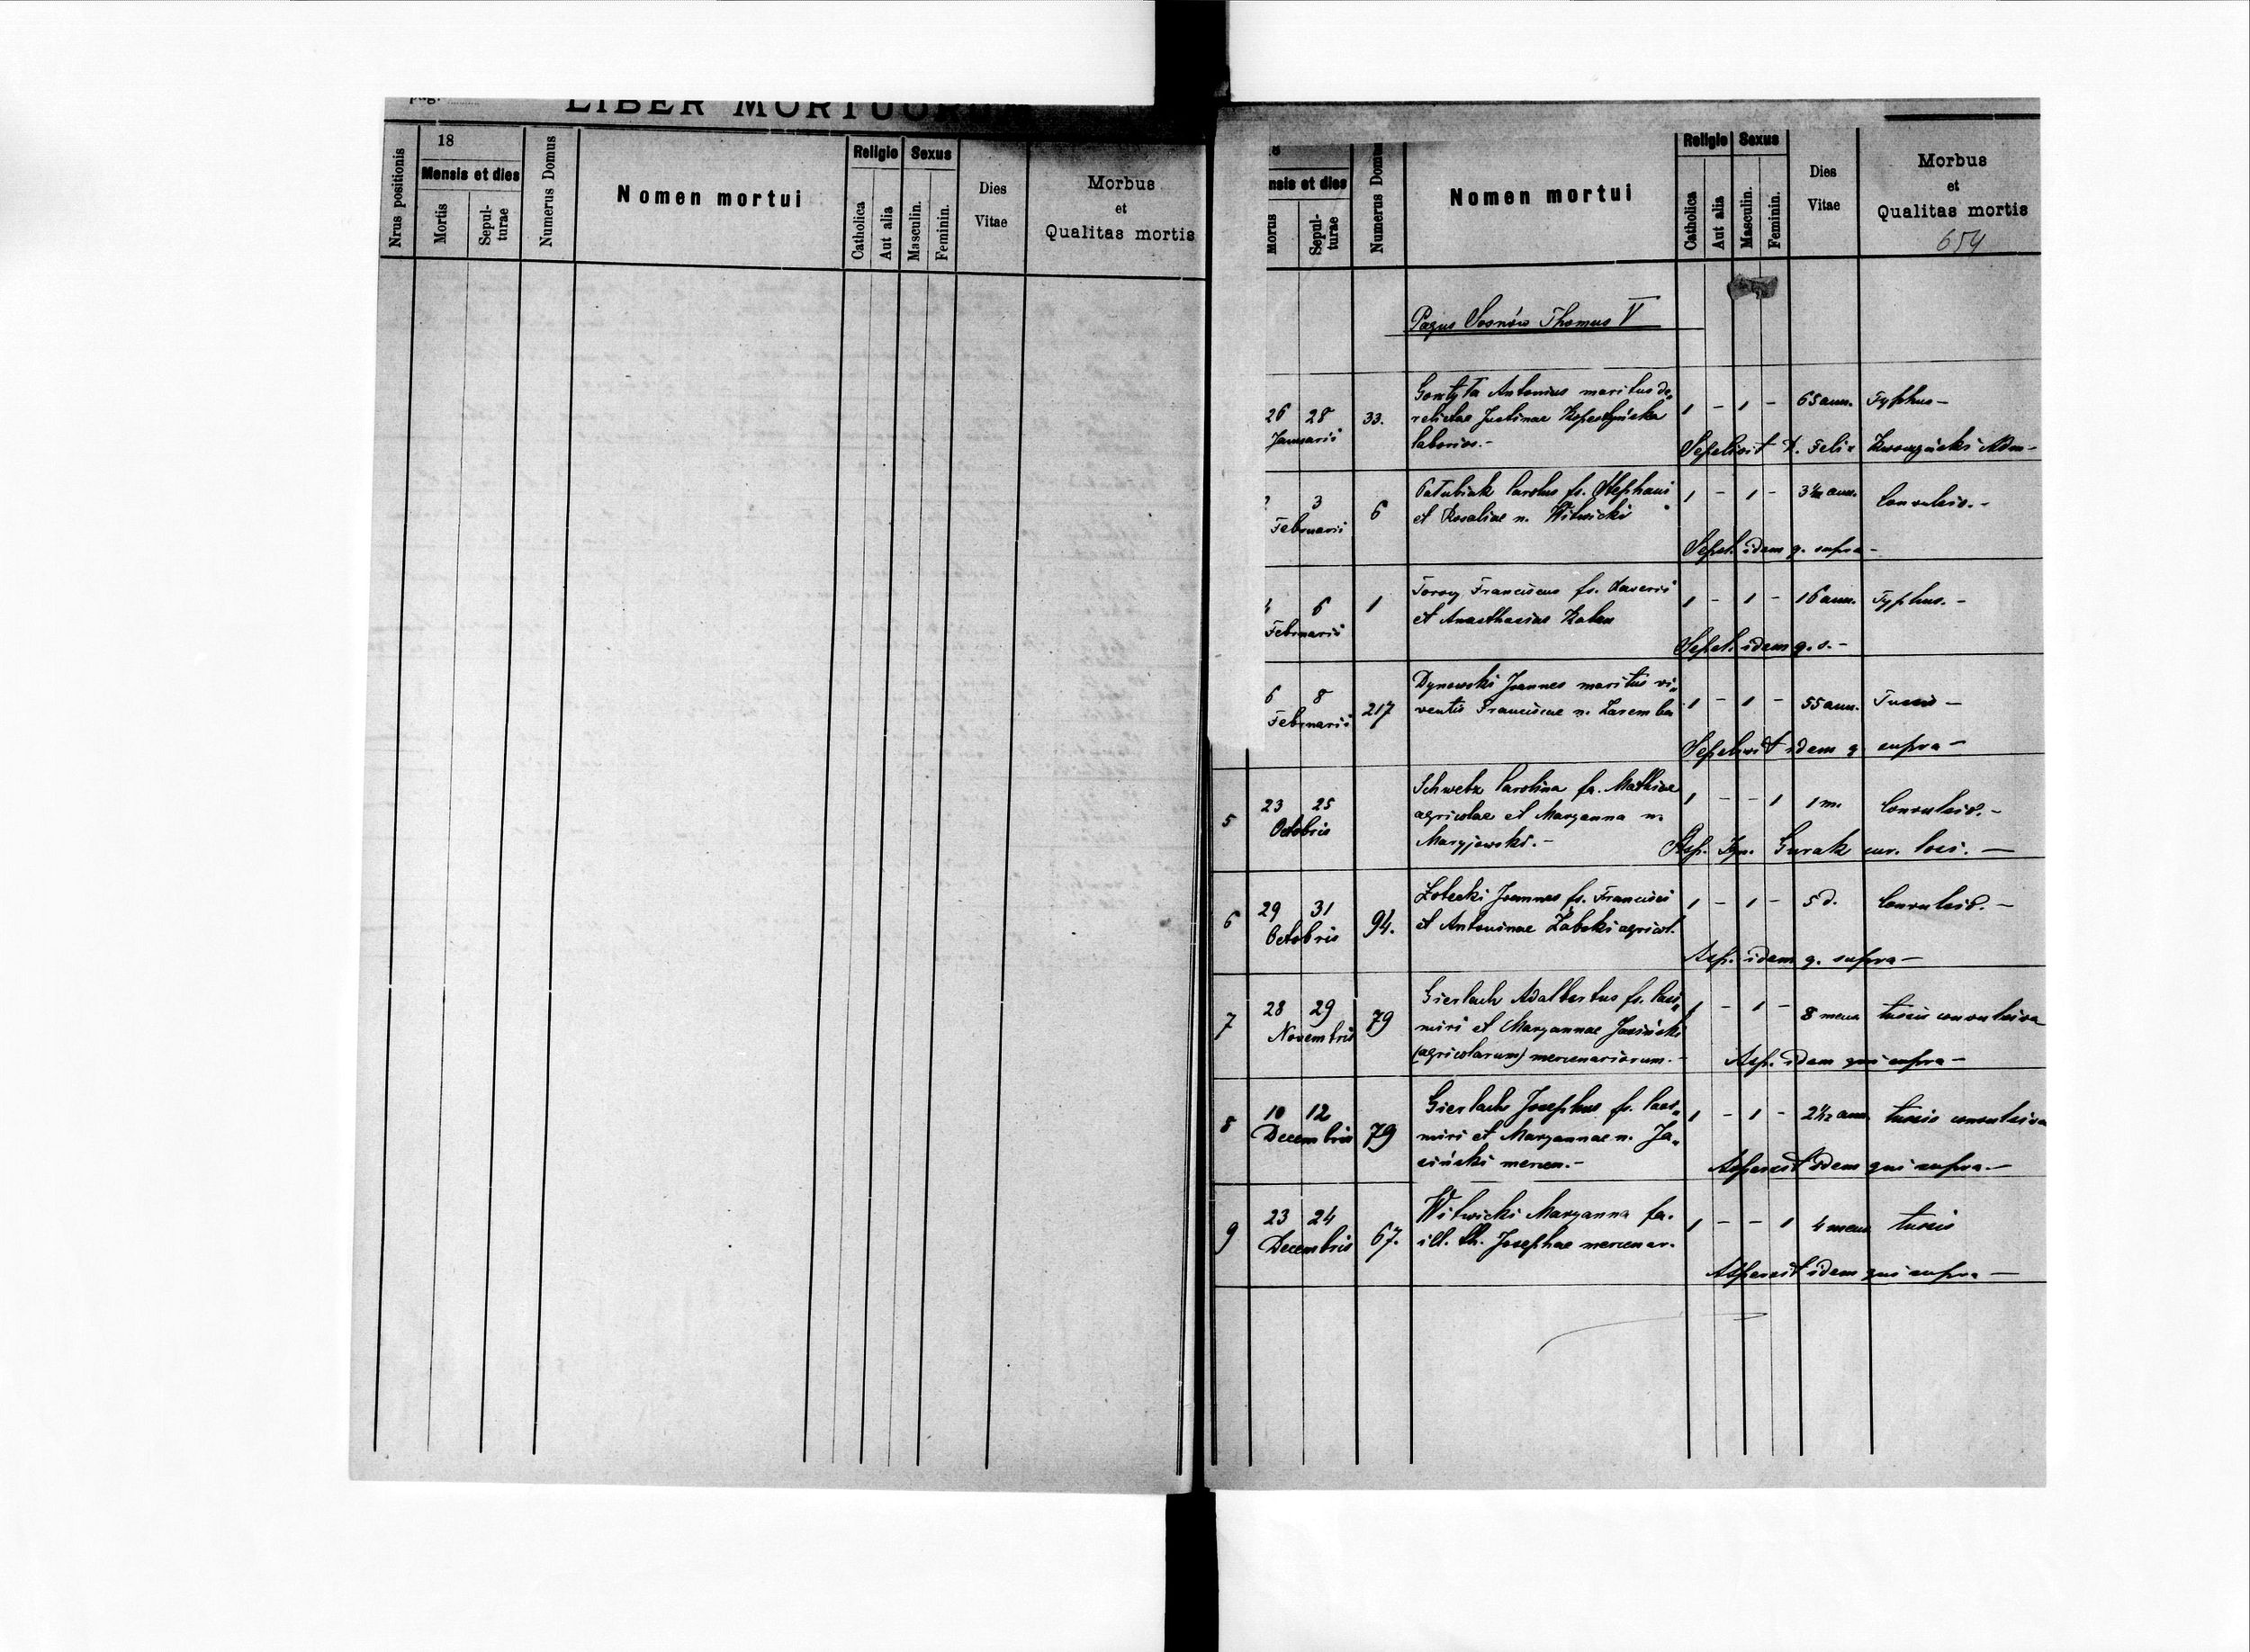 pag.
LIBER MORTUORUM
Nrus positionis
18
Mensis et dies
Mortis
Sepul-
turae
Numerus Domus
Nomen mortui
Religio
Catholica
Aut alia
Sexus
Masculin.
Feminin.
Dies
Vitae
Morbus
et
Qualitas mortis
8
nsis et dies
Morus
Sepul-
turae
Numerus Domus
Nomen mortui
Religio
Catholica
Aut alia
Sexus
Masculin.
Feminin.
Dies
Vitae
Morbus
et
Qualitas mortis
654
Pagus Sosnów Thomus V
26 28
Januarii
33.
Antonius maritus de„
relictae Justinae
laborios.-
1 - 1 - 65 ann. Typhus -
Sepelivit D. Felix Adm -
3
Februarii
6
Carolus fs. Stephani
et Rosaliae n. Witwicki
1 - 1 - 3 ann. Convulsio. -
Sepel. idem q. supra -
6
Februarii
1
Franciscus fs. Xaverii
et Anasthasiae
1 - 1 - 16 ann. Typhus. -
Sepel. idem q. s. -
6 8
Februarii
217
Dynowski Joannes maritus vi„
ventis Franciscae n. Zaremba
1 - 1 - 55 ann. Tussis -
Sepelivit idem q. supra -
5
23 25
Octobris
Schwetz Carolina fa. Mathiae
agricolae et Maryanna n.
Maryjowski. -
1 - - 1 1 m. Convulsio. -
Asp. Ign. Gurak cur. loci. -
6
29 31
Octobris
94.
Zotecki Joannes fs. Francisci
et Antoninae Żabski agricol.
1 - 1 - 5 d. Convulsio. -
Asp. idem q. supra -
7
28 29
Novembris
79
Gierlach Adalbertus fs. Casi„
miri et Maryannae Jasiński
(agricolarum) mercenariorum. -
1 - 1 - 8 mens tussis convulsiva
Asp. idem qui supra -
8
10 12
Decembris
79
Gierlach Josephus fs. Casi„
miri et Maryannae n. Ja„
siński mercen. -
1 - 1 - 2 1/12 ann. tussis convulsiva
Aspersit idem qui supra. -
9
23 24
Decembris
67.
Witwicki Maryanna fa.
ill. th. Josephae mercenar.
1 - - 1 4 mens tussis
Aspersit idem qui supra -